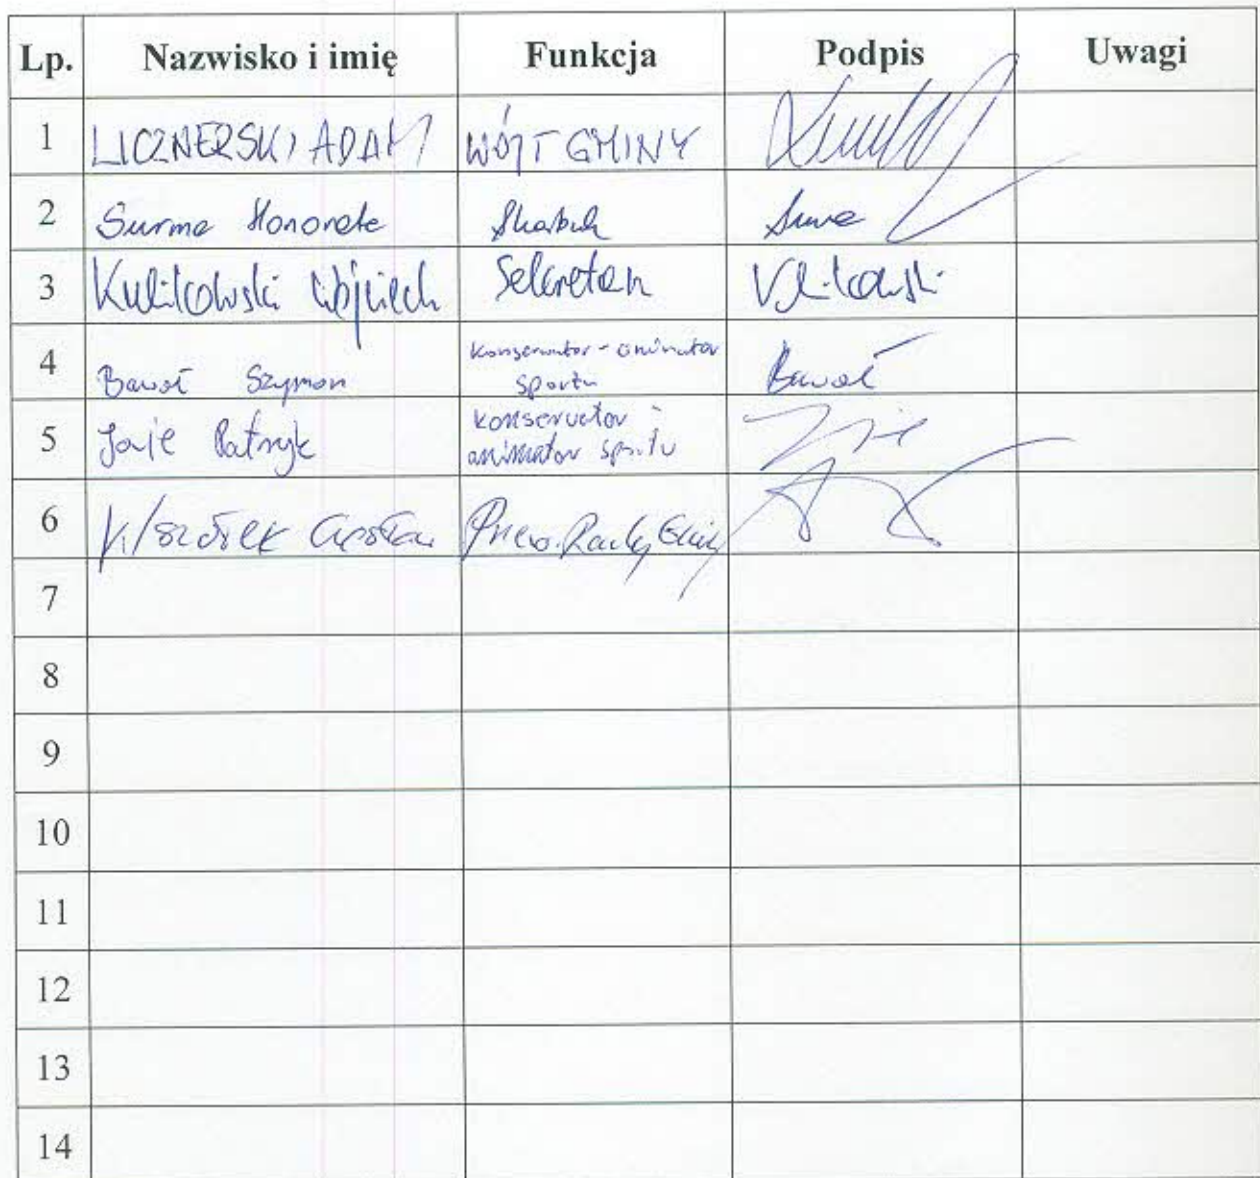 Lp. Nazwisko i imię Funkcja Podpis Uwagi
1 LICZNERSKI ADAM WÓJT GMINY
2 Surma Honorata Skarbnik Surma
3 Kulikowski Wojciech Sekretarz Kulikowski
4 Szymon konserwator - animator
sportu
5 Patryk konserwator i
animator sportu
6
7
8
9
10
11
12
13
14